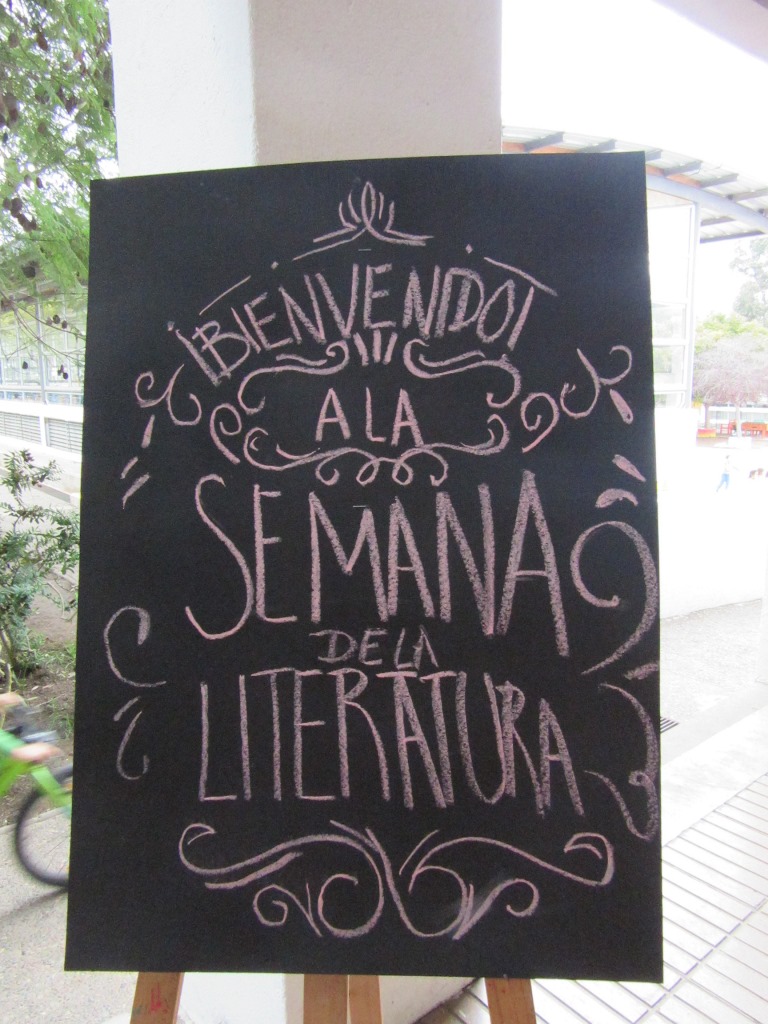 ¡BIENVENIDO!
A LA
SEMANA
DE LA
LITERATURA